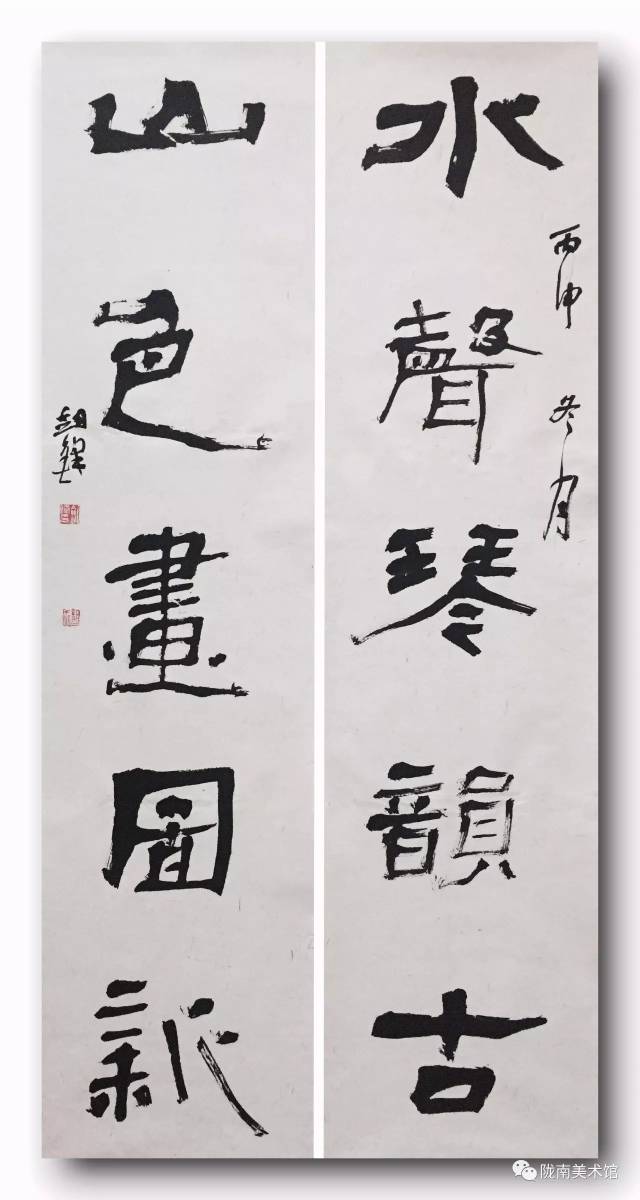 水聲琴韻古
丙申 冬月
山色畫圖新
陇南美术馆